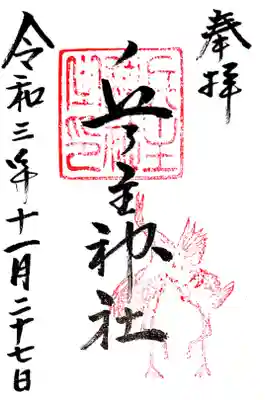 奉拝
兵主神社
令和三年十一月二十七日